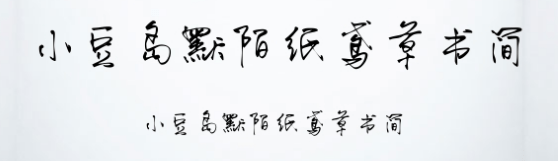 小豆岛默陌纸鸢草书简
小豆岛默陌纸鸢草书简